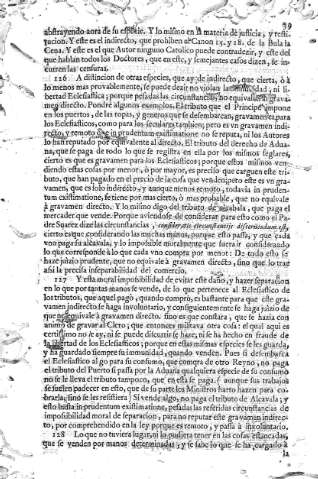 39
abstrayendo aora de su especie. Y lo mismo en materia de justicia, y resti-
tucion. Y este es el indirecto, que prohiben al Canon 15. y 18. de la Bula la
Cena. Y este es el que Autor ninguno Catolico puede contradezir, y este del
que hablan todos los Doctores, que en este, y semejantes casos dizen, se in-
curren las censuras.
126 A distincion de otras especies, que ay de indirecto, que cierta, ò à
lo menos mas provablemente, se puede dezir no violan la inmunidad, ni li-
bertad Eclesiastica; porque pesadas las circunstancias, no equivale à grava-
men directo. Pondrè algunos exemplos. El tributo que el Principe impone
en los puertos, de las ropas, y generos que se desembarcan, gravamen es para
los Eclesiasticos, como para los seculares tambien; pero es vn gravamen indi-
recto, y remoto que in prudentum existimatione no se reputa, ni los Autores
lo han reputado por equivalente al directo. El tributo del derecho de Adua-
na, que se paga de todo lo que se registra en ella por los mismos seglares,
cierto es que es gravamen para los Eclesiasticos; porque estos mismos ven-
diendo estas cosas por menor, ò por mayor, es preciso que carguen este tri-
buto, que han pagado en el precio de la cosa que venden; pero este es vn gra-
vamen, que es solo indirecto, y aunque menos remoto, todavia in pruden-
tum existimatione, se tiene por mas cierto, ò mas probable, que no equivale
à gravamen directo. Y lo mismo digo del tributo de alcabala, que paga el
mercader que vende. Porque aviendose de considerar para esto como el Pa-
dre Suarez dize las circunstancias, consideratis circumstantijs discernendum est,
cierto es que considerando las muchas manos, porque esto passa, y que cada
vno paga su alcavala, y lo impossible moralmente que fuera ir considerando
lo que corresponde à lo que cada vno compra por menor: De todo esto se
haze juizio prudente, que no equivale à gravamen directo, sino que lo trae
assi la precisa inseparabilidad del comercio.
127 Y esta moral impossibilidad de evitar este daño, y hazer separacion
en lo que por tantas manos se vende, de lo que pertenece al Eclesiastico de
los tributos, que aqui pagò, quando comprò, es bastante para que este gra-
vamen indirecto se haga involuntario, y consiguientemente se haga juizio de
que no equivale à gravamen directo, sino es que constara, que se hazia con
animo de gravar al Clero; que entonces militara otra cosa: el qual aqui es
certissimo no le ay, ni se puede discurrir se haze, ni se ha hecho en fraude de
la libertad de los Eclesiasticos; porque en estas mismas especies se les guarda,
y ha guardado siempre su inmunidad, quando venden. Pues si desembarca
el Eclesiastico algo para su consumo, que compra de otro Reyno, no paga
el tributo del Puerto si passa por la Aduana qualquiera especie de su consumo
no se le lleva el tributo tampoco, que en ella se paga (aunque sus trabajos
se suelen padecer en esto, que de su parte los Ministros harto hazen para co-
brarla, sino se les resistiera) Si vende algo, no paga el tributo de Alcavala; y
esto basta in prudentum existimatione, pesadas las referidas circunstancias de
impossibilidad moral de separacion, para no reputar este gravamen indirec-
to, por comprehendido en la ley porque es remoto, y passa à involuntario.
128 Lo que no tuviera lugar, ni lo pudiera tener en las cosas estancadas,
que se venden por manos determinadas, y se sabe lo que se ha cargado à
la